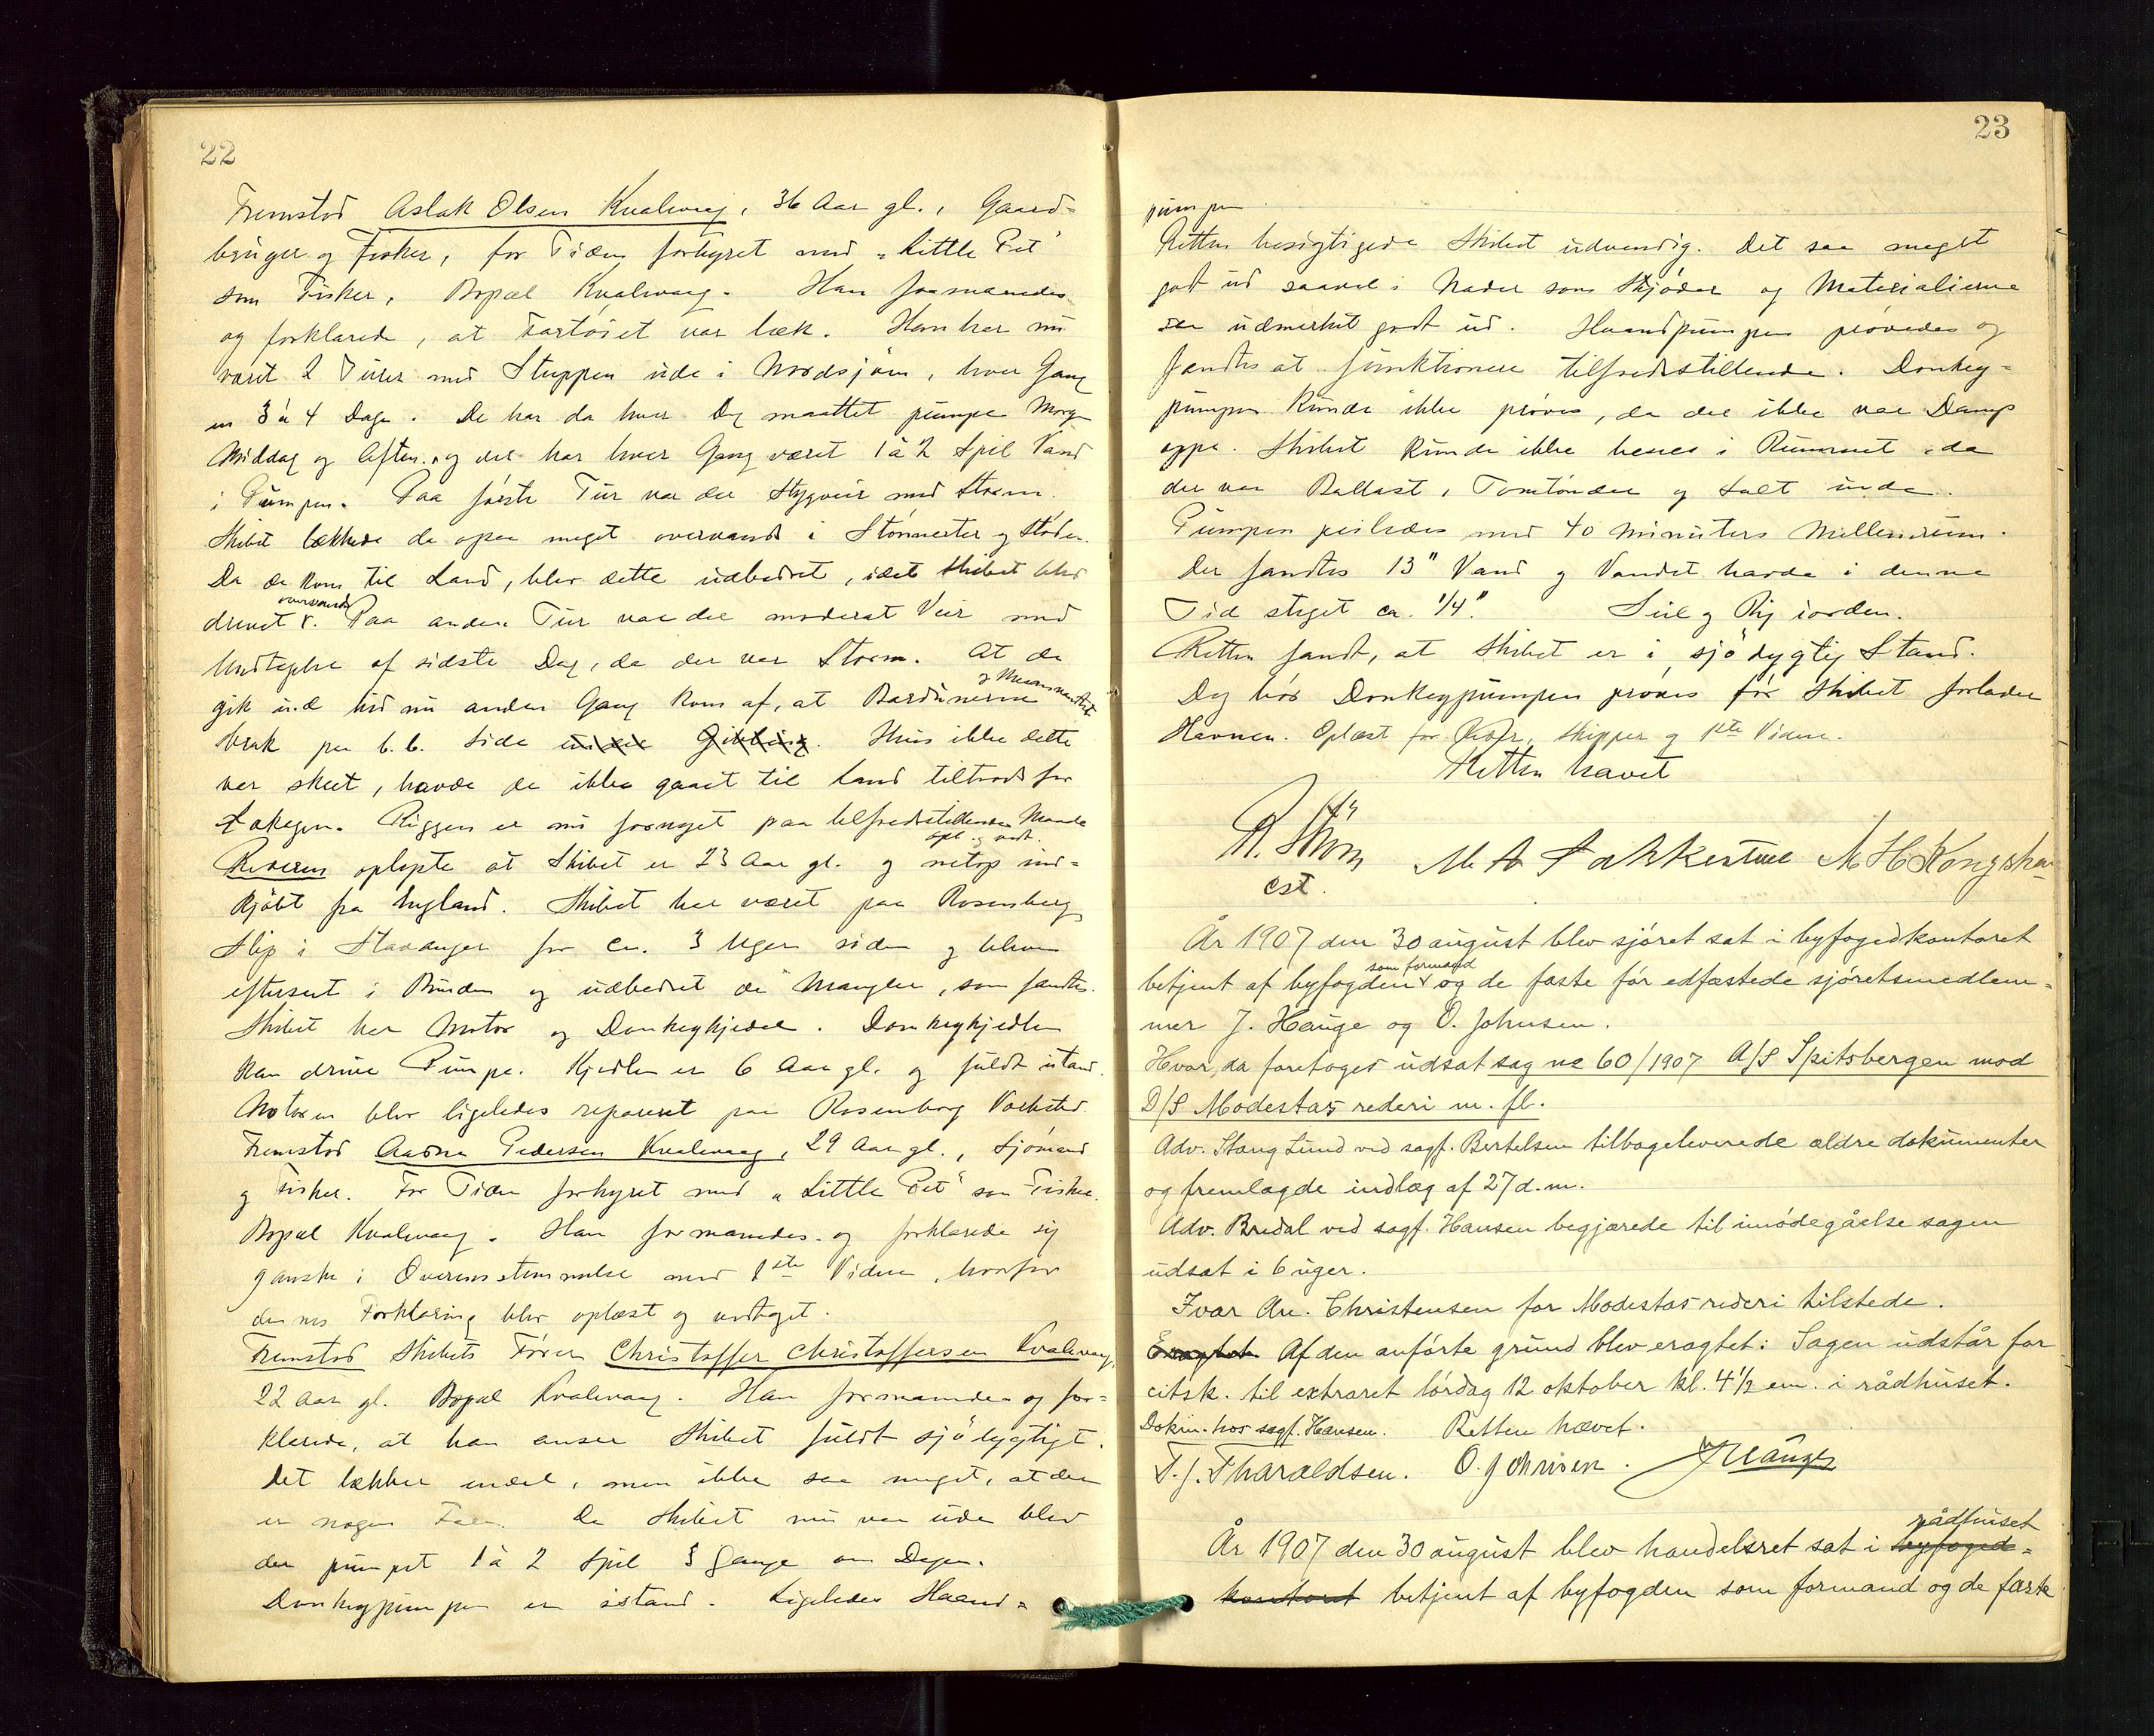 22
Fremstod Aslak Olsen Kvalevaag, 36 Aar gl., Gaard=
bruger og Fisker, for Tiden forhyret med "Little Pet"
som Fisker, Bopæl Kvalevaag. Han formanedes
og forklarede, at Fartøiet var læk. Han har nu
været 2 Turer med Skuppen ude i Nordsjøen, hver Gang
en 3 à 4 Dage. De har da hver Dag maattet pumpe Morgen
Middag og Aften, og det har hver Gang været 1 à 2 Spil Vand
i Pumpen. Paa første Tur var der Stygveir med Storm.
Skibet lækkede da ogsaa meget ovenvands i Stømmerter og Støder.
Da de kom til Land, blev dette udbedret, idet Skibet blev
drevet ovenvands. Paa anden Tur var det moderat Veir med
Undtagelse af sidste Dag, da der var Storm. At de
gik ind hid nu anden Gang kom af, at Bardunerne og
brak paa b.b. Side. Hvis ikke dette
var skeet, havde de ikke gaaet til Land tiltrods for
Lækagen. Riggen er nu fornyet paa tilfredsstillende Maade
opl. og vedt.
Rederen oplyste at Skibet er 23 Aar gl. og netop ind=
kjøbt fra England. Skibet har været paa Rosenberg
Slip i Stavanger for ca. 3 Uger siden og blev
efterseet i Bunden og udbedret de Mangler, som fandtes.
Skibet har Motor og Donkeykjedel. Donkeykjedlen
kan drive Pumpe. Kjedlen er 6 Aar gl. og fuldt istand.
Motoren blev ligeledes repareret paa Rosenberg Værksted.
Fremstod Aadne Pedersen Kvalevaag, 29 Aar gl., Sjømand
og Fisker. For Tiden forhyret med "Little Pet" som Fisker.
Bopæl Kvalevaag. Han formanedes og forklarede sig
ganske i Overensstemmelse med 1ste Vidne, hvorfor
dennes Forklaring blev oplæst og vedtaget.
Fremstod Skibets Fører Christoffer Christoffersen Kvalevaag,
22 Aar gl. Bopæl Kvalevaag. Han formanedes og for=
klarede, at han anser Skibet fuldt sjødygtigt.
Det lækker endel, men ikke saa meget, at der
er nogen Fare. Da Skibet nu var ude blev
der pumpet 1 à 2 Spil 3 Gange om Dagen.
Donkeypumpen er istand. Ligeledes Haand=
23
pumpen
Retten besigtigede Skibet udvendig. Det saa meget
godt ud saavel i Nader som Skjøder og Materialierne
saa udmerket godt ud. Haandpumpen prøvedes og
fandtes at funktionere tilfredsstillende. Donkey=
pumpen kunde ikke prøves, da der ikke var Damp
oppe. Skibet kunde ikke besees i Rummet, da
der var Ballast, Tomtønder og Salt inde.
Pumpen peiledes med 40 Minutters Mellemrum.
Der fandtes 13" Vand og Vandet havde i denne
Tid steget ca. 1/4". Seil og Rig iorden.
Retten fandt, at Skibet er i sjødygtig Stand.
Dog bør Donkeypumpen prøves før Skibet forlader
Havnen. Oplæst for Skipper og 1ste Vidne.
Retten hævet
R. Strøm
cst.
År 1907 den 30 august blev sjøret sat i byfogedkontoret
betjent af byfogden som formand og de faste før edfæstede sjøretsmedlem=
mer J. Hauge og O. Johnsen.
Hvor da foretoges udsat sag no 60/1907 A/S Spitsbergen mod
D/S Modestas rederi m. fl.
Adv. Stang Lund ved sagf. Bertelsen tilbageleverede ældre dokumenter
og fremlagde indlæg af 27 d.m.
Adv. Bredal ved sagf. Hansen begjærede til imødegåelse sagen
udsat i 6 uger.
Ivar An. Christensen for Modestas rederi tilstede.
Af den anførte grund blev eragtet: Sagen udstår for
citsk. til extraret lørdag 12 oktober kl. 4 1/2 em. i rådhuset.
Dokum. hos sagf. Hansen. Retten hævet.
T. J. Tharaldsen. O. Johnsen. J Hauge
År 1907 den 30 august blev handelsret sat i byfoged= rådhuset
kontoret betjent af byfogden som formand og de faste